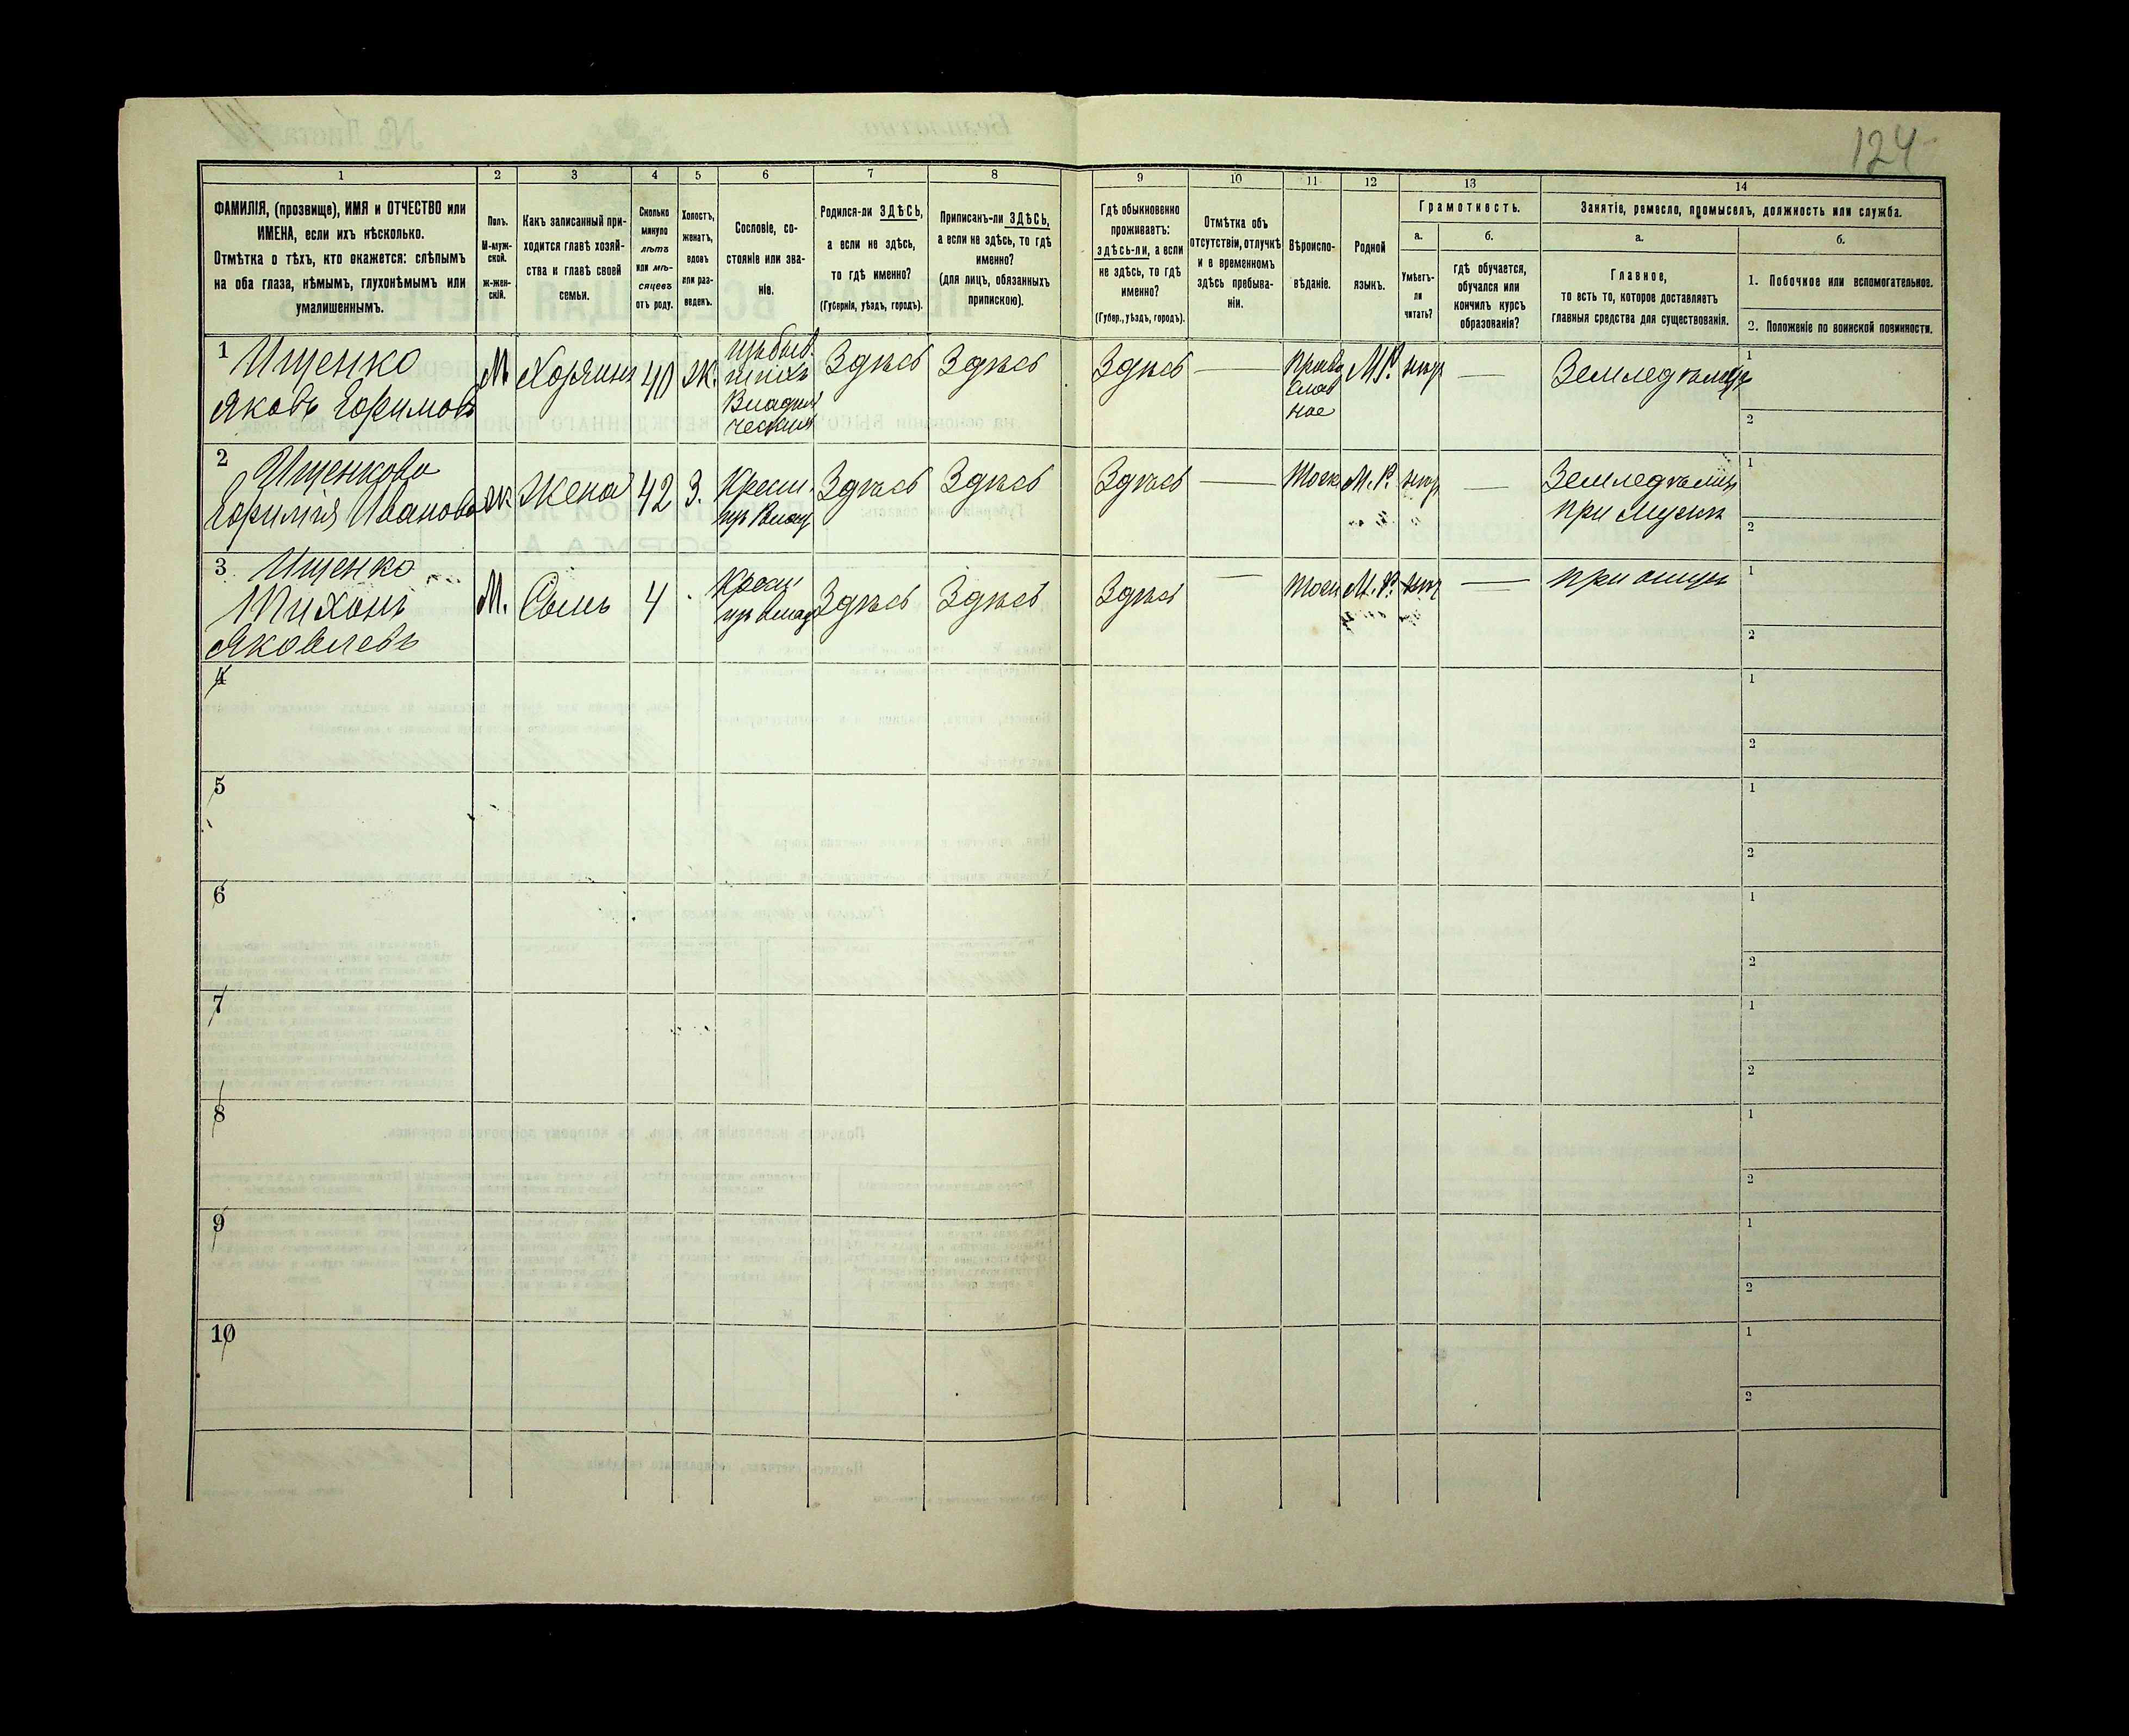 124
1 2 3 4 5 6 7 8 9 10 11 12 13 14
ФАМИЛІЯ, (прозвище), ИМЯ и ОТЧЕСТВО или
ИМЕНА, если ихъ нѣсколько.
Отмѣтка о тѣхъ, кто окажется: слѣпымъ
на оба глаза, нѣмымъ, глухонѣмымъ или
умалишеннымъ.
Полъ.
М-муж-
ской.
ж-жен-
скій.
Какъ записанный при-
ходится главѣ хозяй-
ства и главѣ своей
семьи.
Сколько
минуло
лѣтъ
или мѣ-
сяцевъ
отъ роду.
Холостъ,
женатъ,
вдовъ
или раз-
веденъ.
Сословіе, со-
стояніе или зва-
ніе.
Родился-ли ЗДѢСЬ,
а если не здѣсь,
то гдѣ именно?
(Губернія, уѣздъ, городъ).
Приписанъ-ли ЗДѢСЬ,
а если не здѣсь, то гдѣ
именно?
(для лицъ, обязанныхъ
припиской).
Гдѣ обыкновенно
проживаетъ:
здѣсь-ли, а если
не здѣсь, то гдѣ
именно?
(Губер., уѣздъ, городъ).
Отмѣтка объ
отсутствіи, отлучкѣ
и в временномъ
здѣсь пребыва-
ніи.
Вѣроиспо-
вѣданіе.
Родной
языкъ.
Грамотность.
а.
Умѣетъ-
ли
читать?
б.
гдѣ обучается,
обучался или
кончилъ курсъ
образованія?
Занятіе, ремесло, промыселъ, должность или служба.
а.
Главное,
то есть то, которое доставляетъ
главныя средства для существованія.
б.
1. Побочное или вспомогательное.
2. Положеніе по воинской повинности.
1 Ищенко
Яковъ Ефимовъ
М. Хозяинъ 40 Ж.
Здѣсь Здѣсь Здѣсь —
Право
слав
ное
М.Р. нѣтъ — Земледѣлецъ
1
2
2 Ищенкова
Ефимія Иванова
Ж. Жена 42 З.
Крест.
изъ Влад.
Здѣсь Здѣсь Здѣсь — Тоже М.Р. нѣтъ —
Земледѣлица
при мужѣ
1
2
3 Ищенко
Тихонъ
Яковлевъ
М. Сынъ 4
Крест.
изъ Влад
Здѣсь Здѣсь Здѣсь — Тоже М.Р. нѣтъ — при отцѣ
1
2
4
1
2
5
1
2
6
1
2
7
1
2
8
1
2
9
1
2
10
1
2